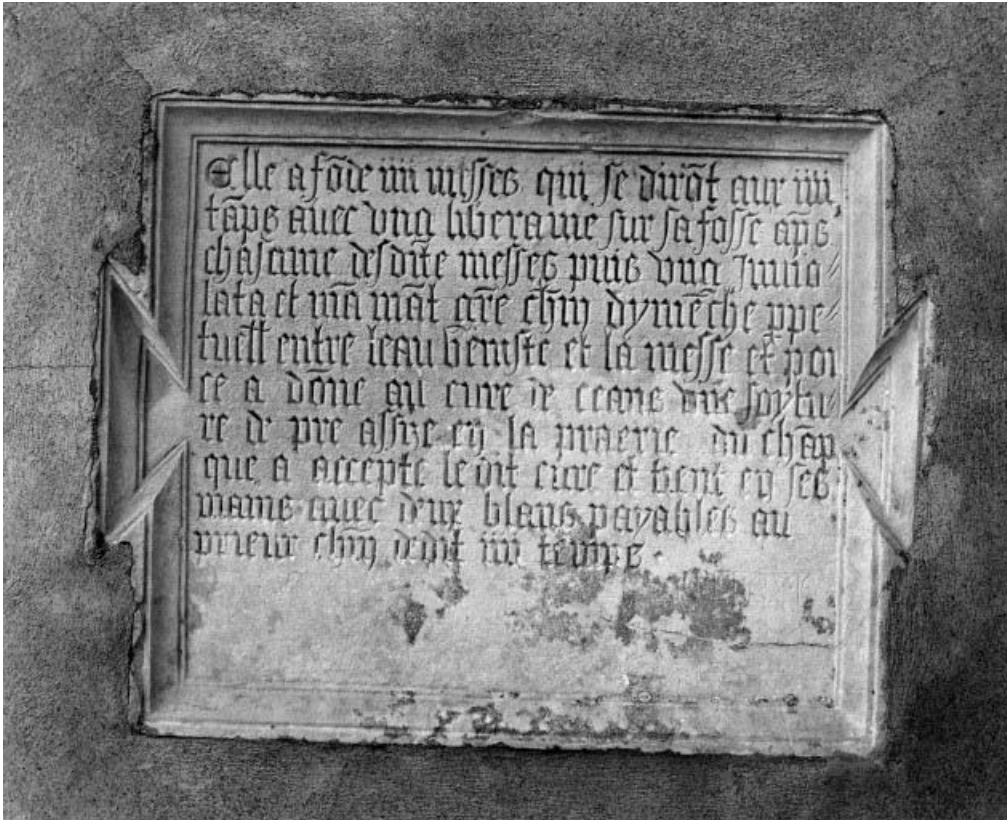 Elle a fõde iiii messes qui se dirõt aux iiii
tãps auec vng libera me sur sa fosse ap̃s
chascune desd̃te messes puis vng Inuio⸗
lata et mã mãt gr̃e chũ dymẽche ꝑpe⸗
tuell entre leau beniste et la messe et po
ce a dõne au cure de ceans
re de pre assize en la praerie du chãp
que a accepte le dit cure et tient en ses
mains auec deux blans payables au
prieur chũ dedit iiii temps .